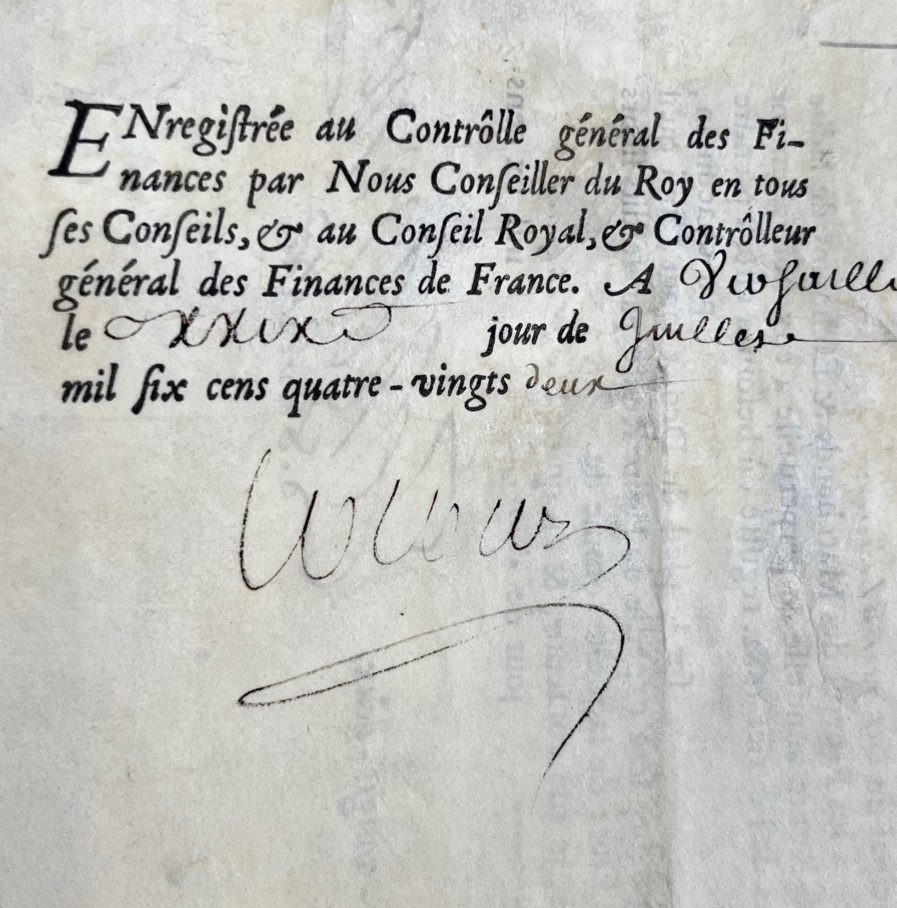 ENregiſtrée au Contrôlle général des Fi-
nances par Nous Conſeiller du Roy en tous
ſes Conſeils, & au Conſeil Royal, & Contrôlleur
général des Finances de France. A Verſaille
le xxixe jour de Juillet
mil ſix cens quatre-vingts deux